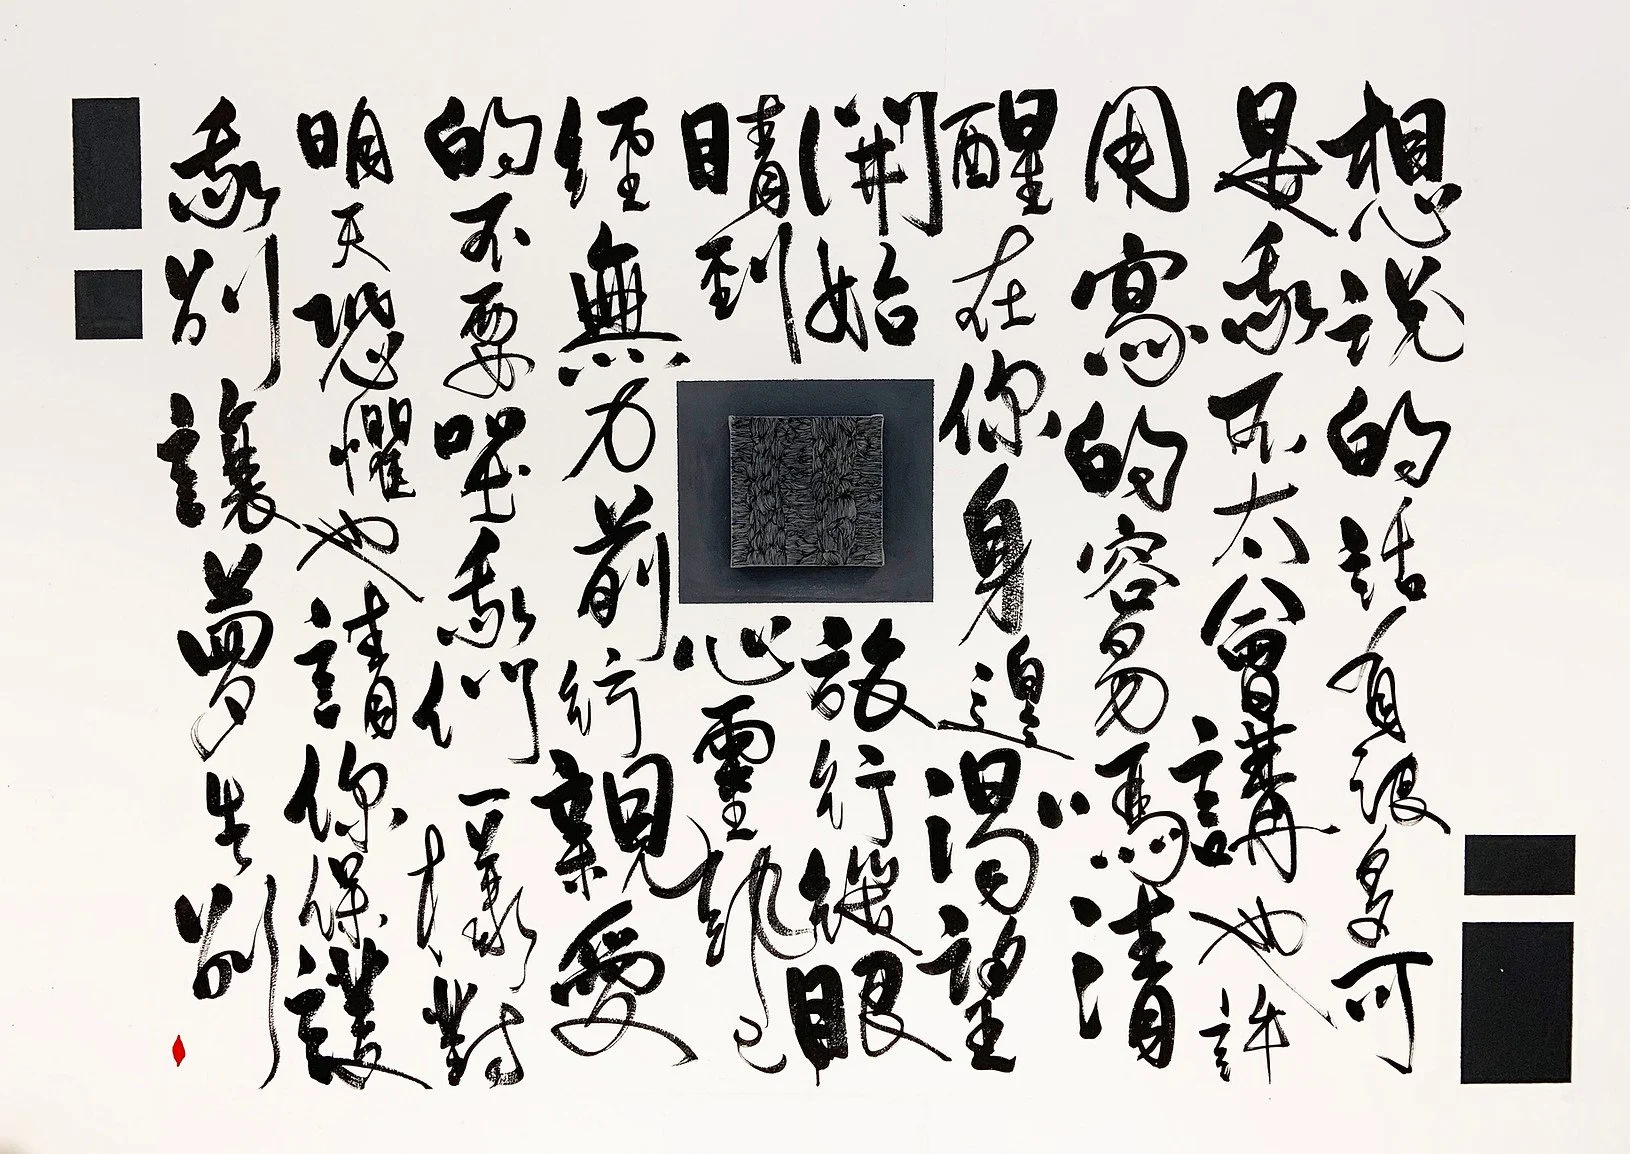 想說的話有很多可
是我不太會講也許
用寫的容易嗎清
醒在你身邊渴望
開始旅行從眼
睛到心靈就已
經無力前行親愛
的不要哭我們一樣對
明天恐懼也請你保護
我別讓夢告別